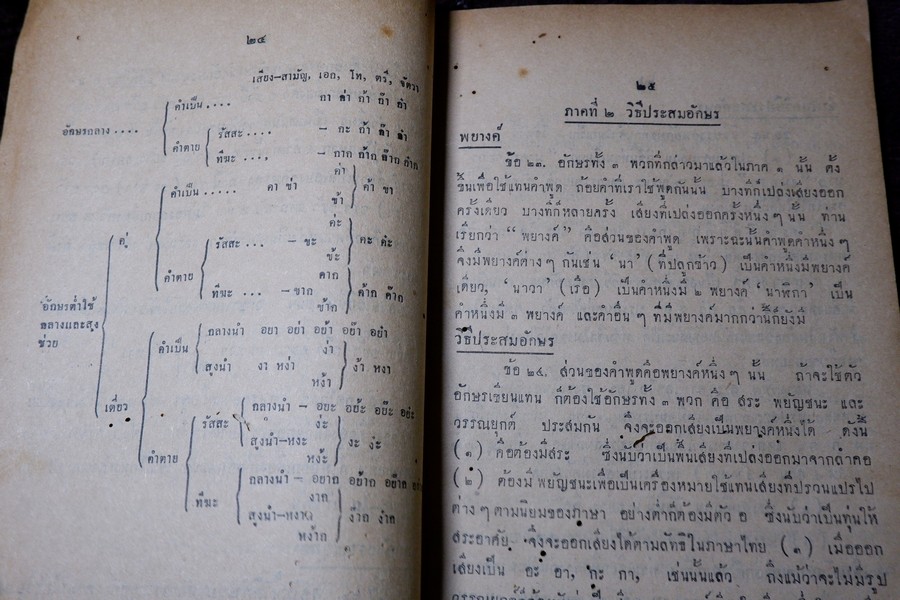 ๒๔
เสียง-สามัญ, เอก, โท, ตรี, จัตวา
คำเป็น .... กา ก่า ก้า ก๊า ก๋า
อักษรกลาง ....
รัสสะ .... - กะ ก้ะ ก๊ะ ก๋ะ
คำตาย
ทีฆะ .... - กาก ก้าก ก๊าก ก๋าก
ค่า
คำเป็น ..... คา ข่า ค้า ขา
ข้า
คู่
ค่ะ
รัสสะ ... - ขะ คะ ค๋ะ
ข้ะ
คำตาย
คาก
ทีฆะ ... - ขาก ค้าก ค๋าก
ข้าก
อักษรต่ำใช้
กลางและสูง
ช่วย
กลางนำ อยา อย่า อย้า อย๊า อย๋า
คำเป็น ง่า
สูงนำ งา หง่า ง้า หงา
หง้า
เดี่ยว
กลางนำ - อยะ อย้ะ อย๊ะ อย๋ะ
รัสสะ ง่ะ
สูงนำ - หงะ งะ ง๋ะ
หง้ะ
คำตาย
กลางนำ - อยาก อย้าก อย๊าก
ทีฆะ งาก
สูงนำ - หงาก ง้าก ง๋าก
หง้าก
๒๕
ภาคที่ ๒ วิธีประสมอักษร
พยางค์
ข้อ ๒๓. อักษรทั้ง ๓ พวกที่กล่าวมาแล้วในภาค ๑ นั้น ตั้ง
ขึ้นเพื่อใช้แทนคำพูด ถ้อยคำที่เราใช้พูดกันนั้น บางทีก็เปล่งเสียงออก
ครั้งเดียว บางทีก็หลายครั้ง เสียงที่เปล่งออกครั้งหนึ่งๆ นั้น ท่าน
เรียกว่า "พยางค์" คือส่วนของคำพูด เพราะฉะนั้นคำพูดคำหนึ่งๆ
จึงมีพยางค์ต่างๆ กันเช่น 'นา' (ที่ปลูกข้าว) เป็นคำหนึ่งมีพยางค์
เดียว, 'นาวา' (เรือ) เป็นคำหนึ่งมี ๒ พยางค์ 'นาฬิกา' เป็น
คำหนึ่งมี ๓ พยางค์ และคำอื่นๆ ที่มีพยางค์มากกว่านี้ก็ยังมี
วิธีประสมอักษร
ข้อ ๒๔. ส่วนของคำพูดคือพยางค์หนึ่งๆ นั้น ถ้าจะใช้ตัว
อักษรเขียนแทน ก็ต้องใช้อักษรทั้ง ๓ พวก คือ สระ พยัญชนะ และ
วรรณยุกต์ ประสมกัน จึงจะออกเสียงเป็นพยางค์หนึ่งได้ ดังนี้
(๑) คือต้องมีสระ ซึ่งนับว่าเป็นพื้นเสียงที่เปล่งออกมาจากลำคอ
(๒) ต้องมีพยัญชนะเพื่อเป็นเครื่องหมายใช้แทนเสียงที่ปรวนแปรไป
ต่างๆ ตามนิยมของภาษา อย่างต่ำก็ต้องมีตัว อ ซึ่งนับว่าเป็นทุ่นให้
สระอาศัย จึงจะออกเสียงได้ตามลัทธิในภาษาไทย (๓) เมื่อออก
เสียงเป็น อะ อา, กะ กา, เช่นนั้นแล้ว ถึงแม้ว่าจะไม่มีรูป